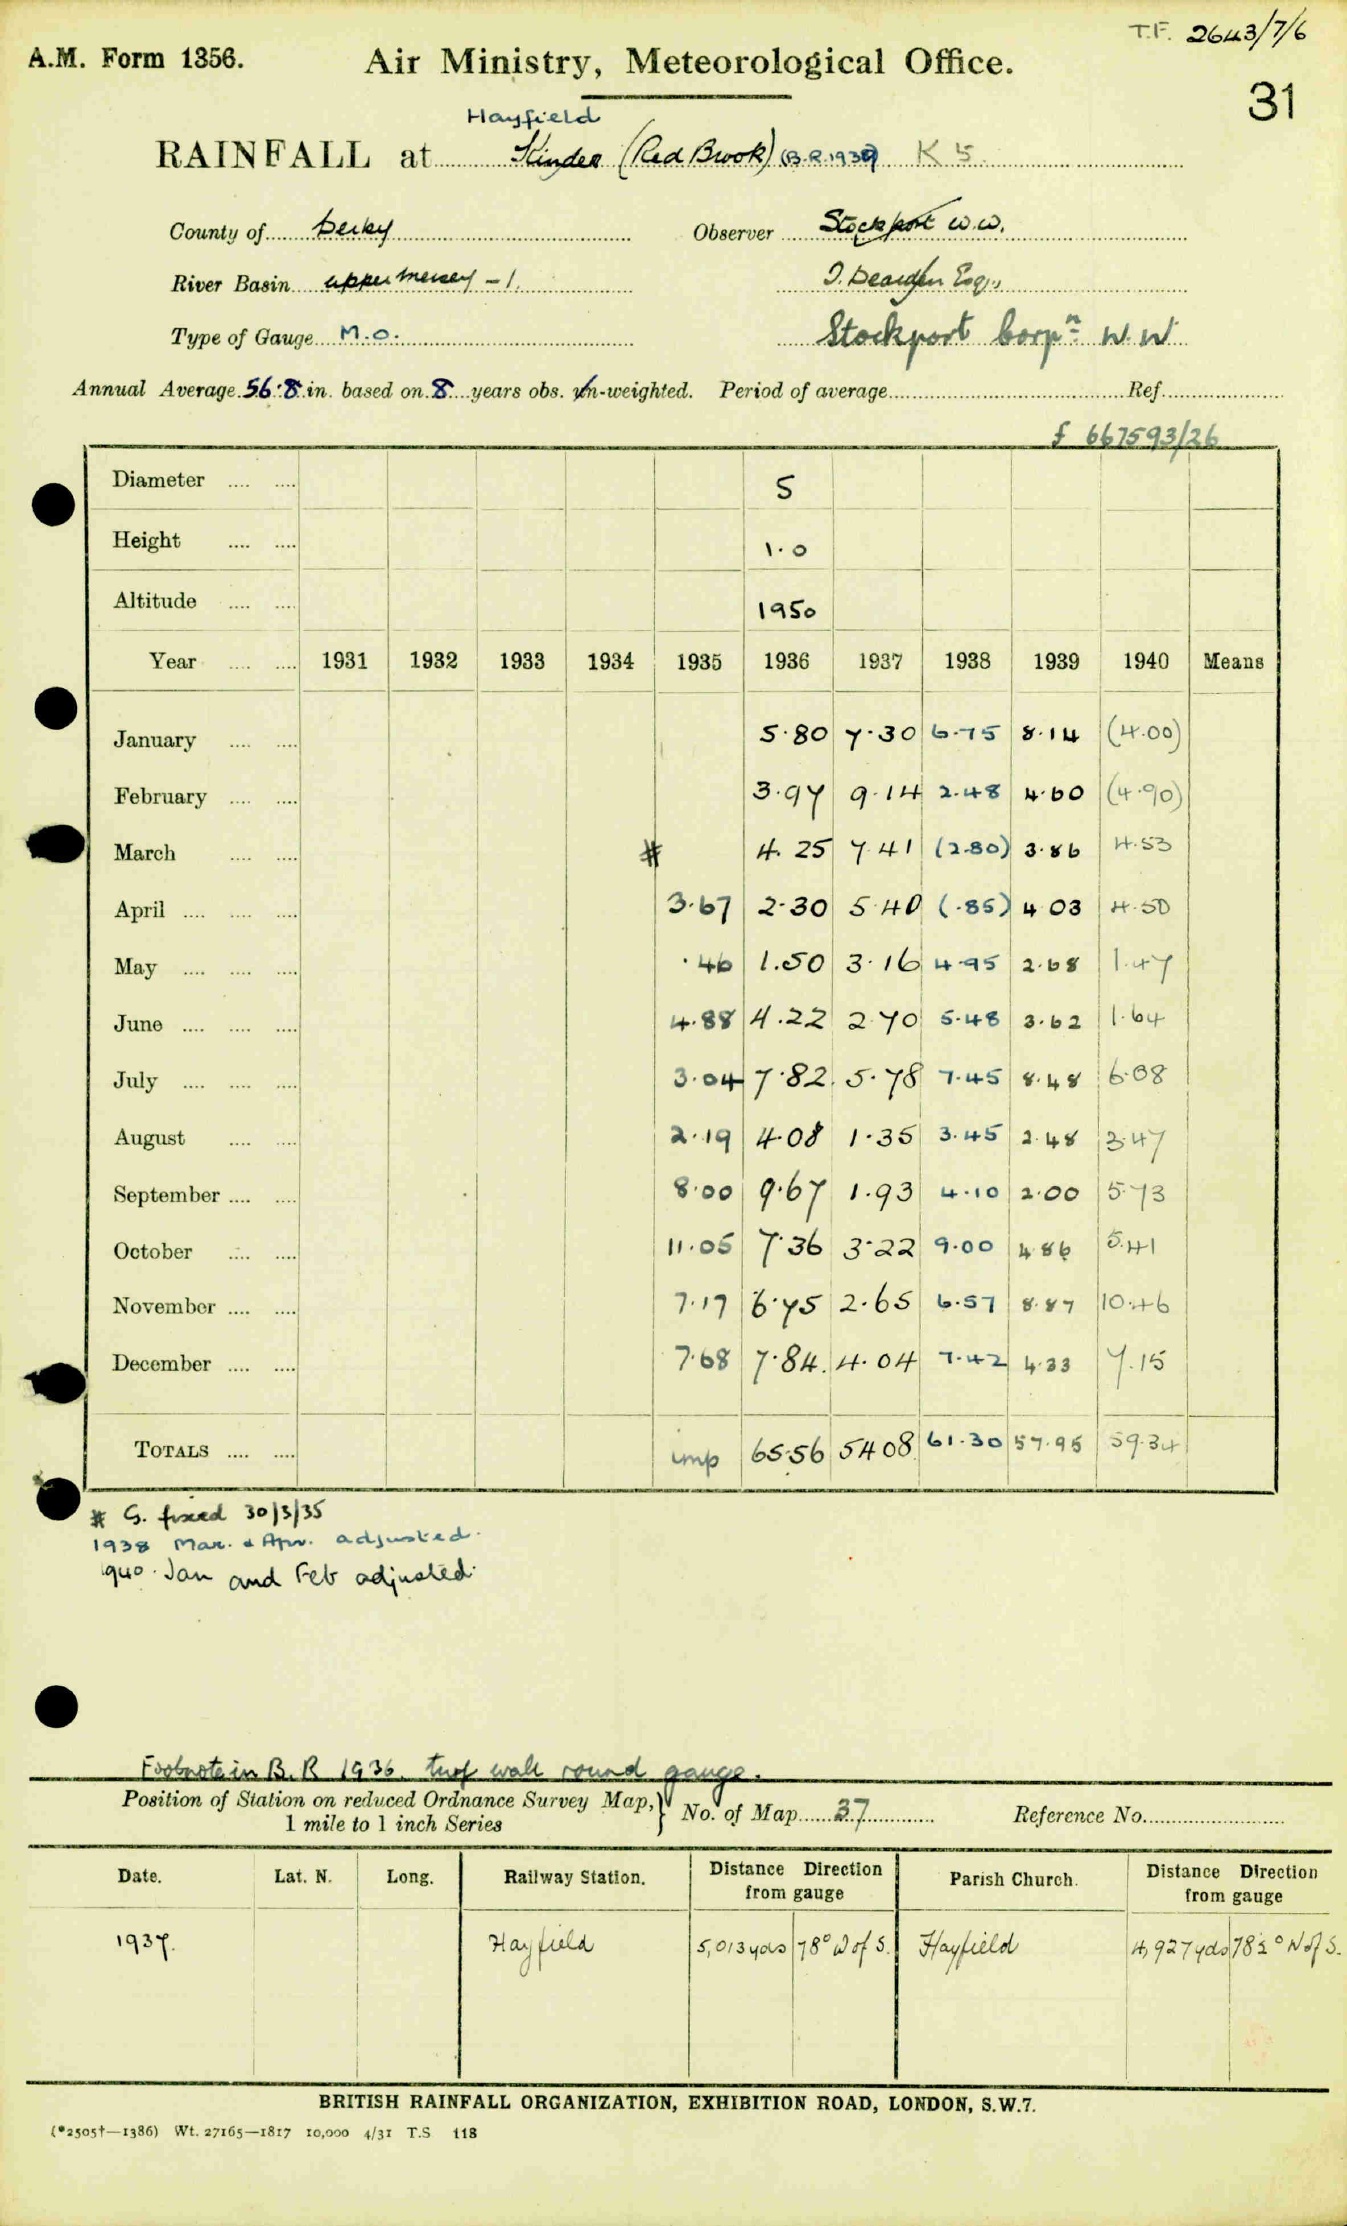 T.F. 2643/7/6
A.M. Form 1356. Air Ministry, Meteorological Office.
31
Hayfield
RAINFALL at Kinder (Red Brook) (B.R. 1939) K 5.
County of Derby Observer Stockport W.W.
River Basin upper Mersey - 1. J. Dearden Esq.,
Type of Gauge M.O. Stockport Corpn W.W
Annual Average 56.8 in. based on 8 years obs. un-weighted. Period of average Ref.
f 667593/26
Diameter 5
Height 1.0
Altitude 1950
Year 1931 1932 1933 1934 1935 1936 1937 1938 1939 1940 Means
January 5.80 7.30 6.75 8.14 (4.00)
February 3.97 9.14 2.48 4.60 (4.90)
March # 4.25 7.41 (2.80) 3.86 4.53
April 3.67 2.30 5.40 (.85) 4.03 4.50
May .46 1.50 3.16 4.95 2.68 1.47
June 4.88 4.22 2.70 5.48 3.62 1.64
July 3.04 7.82 5.78 7.45 8.48 6.08
August 2.19 4.08 1.35 3.45 2.48 3.47
September 8.00 9.67 1.93 4.10 2.00 5.73
October 11.05 7.36 3.22 9.00 4.86 5.41
November 7.17 6.75 2.65 6.57 8.87 10.46
December 7.68 7.84 4.04 7.42 4.33 7.15
TOTALS imp 65.56 54.08 61.30 57.95 59.34
# G. fixed 30/3/35
1938 Mar. & Apr. adjusted.
1940. Jan and Feb adjusted.
Footnote in B.R 1936. turf wall round gauge.
Position of Station on reduced Ordnance Survey Map,} No. of Map 37 Reference No.
1 mile to 1 inch Series
Date. Lat. N. Long. Railway Station. Distance Direction from gauge Parish Church. Distance Direction from gauge
1937. Hayfield 5,013 yds 78° W of S. Hayfield 4,927 yds 78½° W of S.
BRITISH RAINFALL ORGANIZATION, EXHIBITION ROAD, LONDON, S.W.7.
(*2505†—1386) Wt. 27165—1817 10,000 4/31 T.S 118